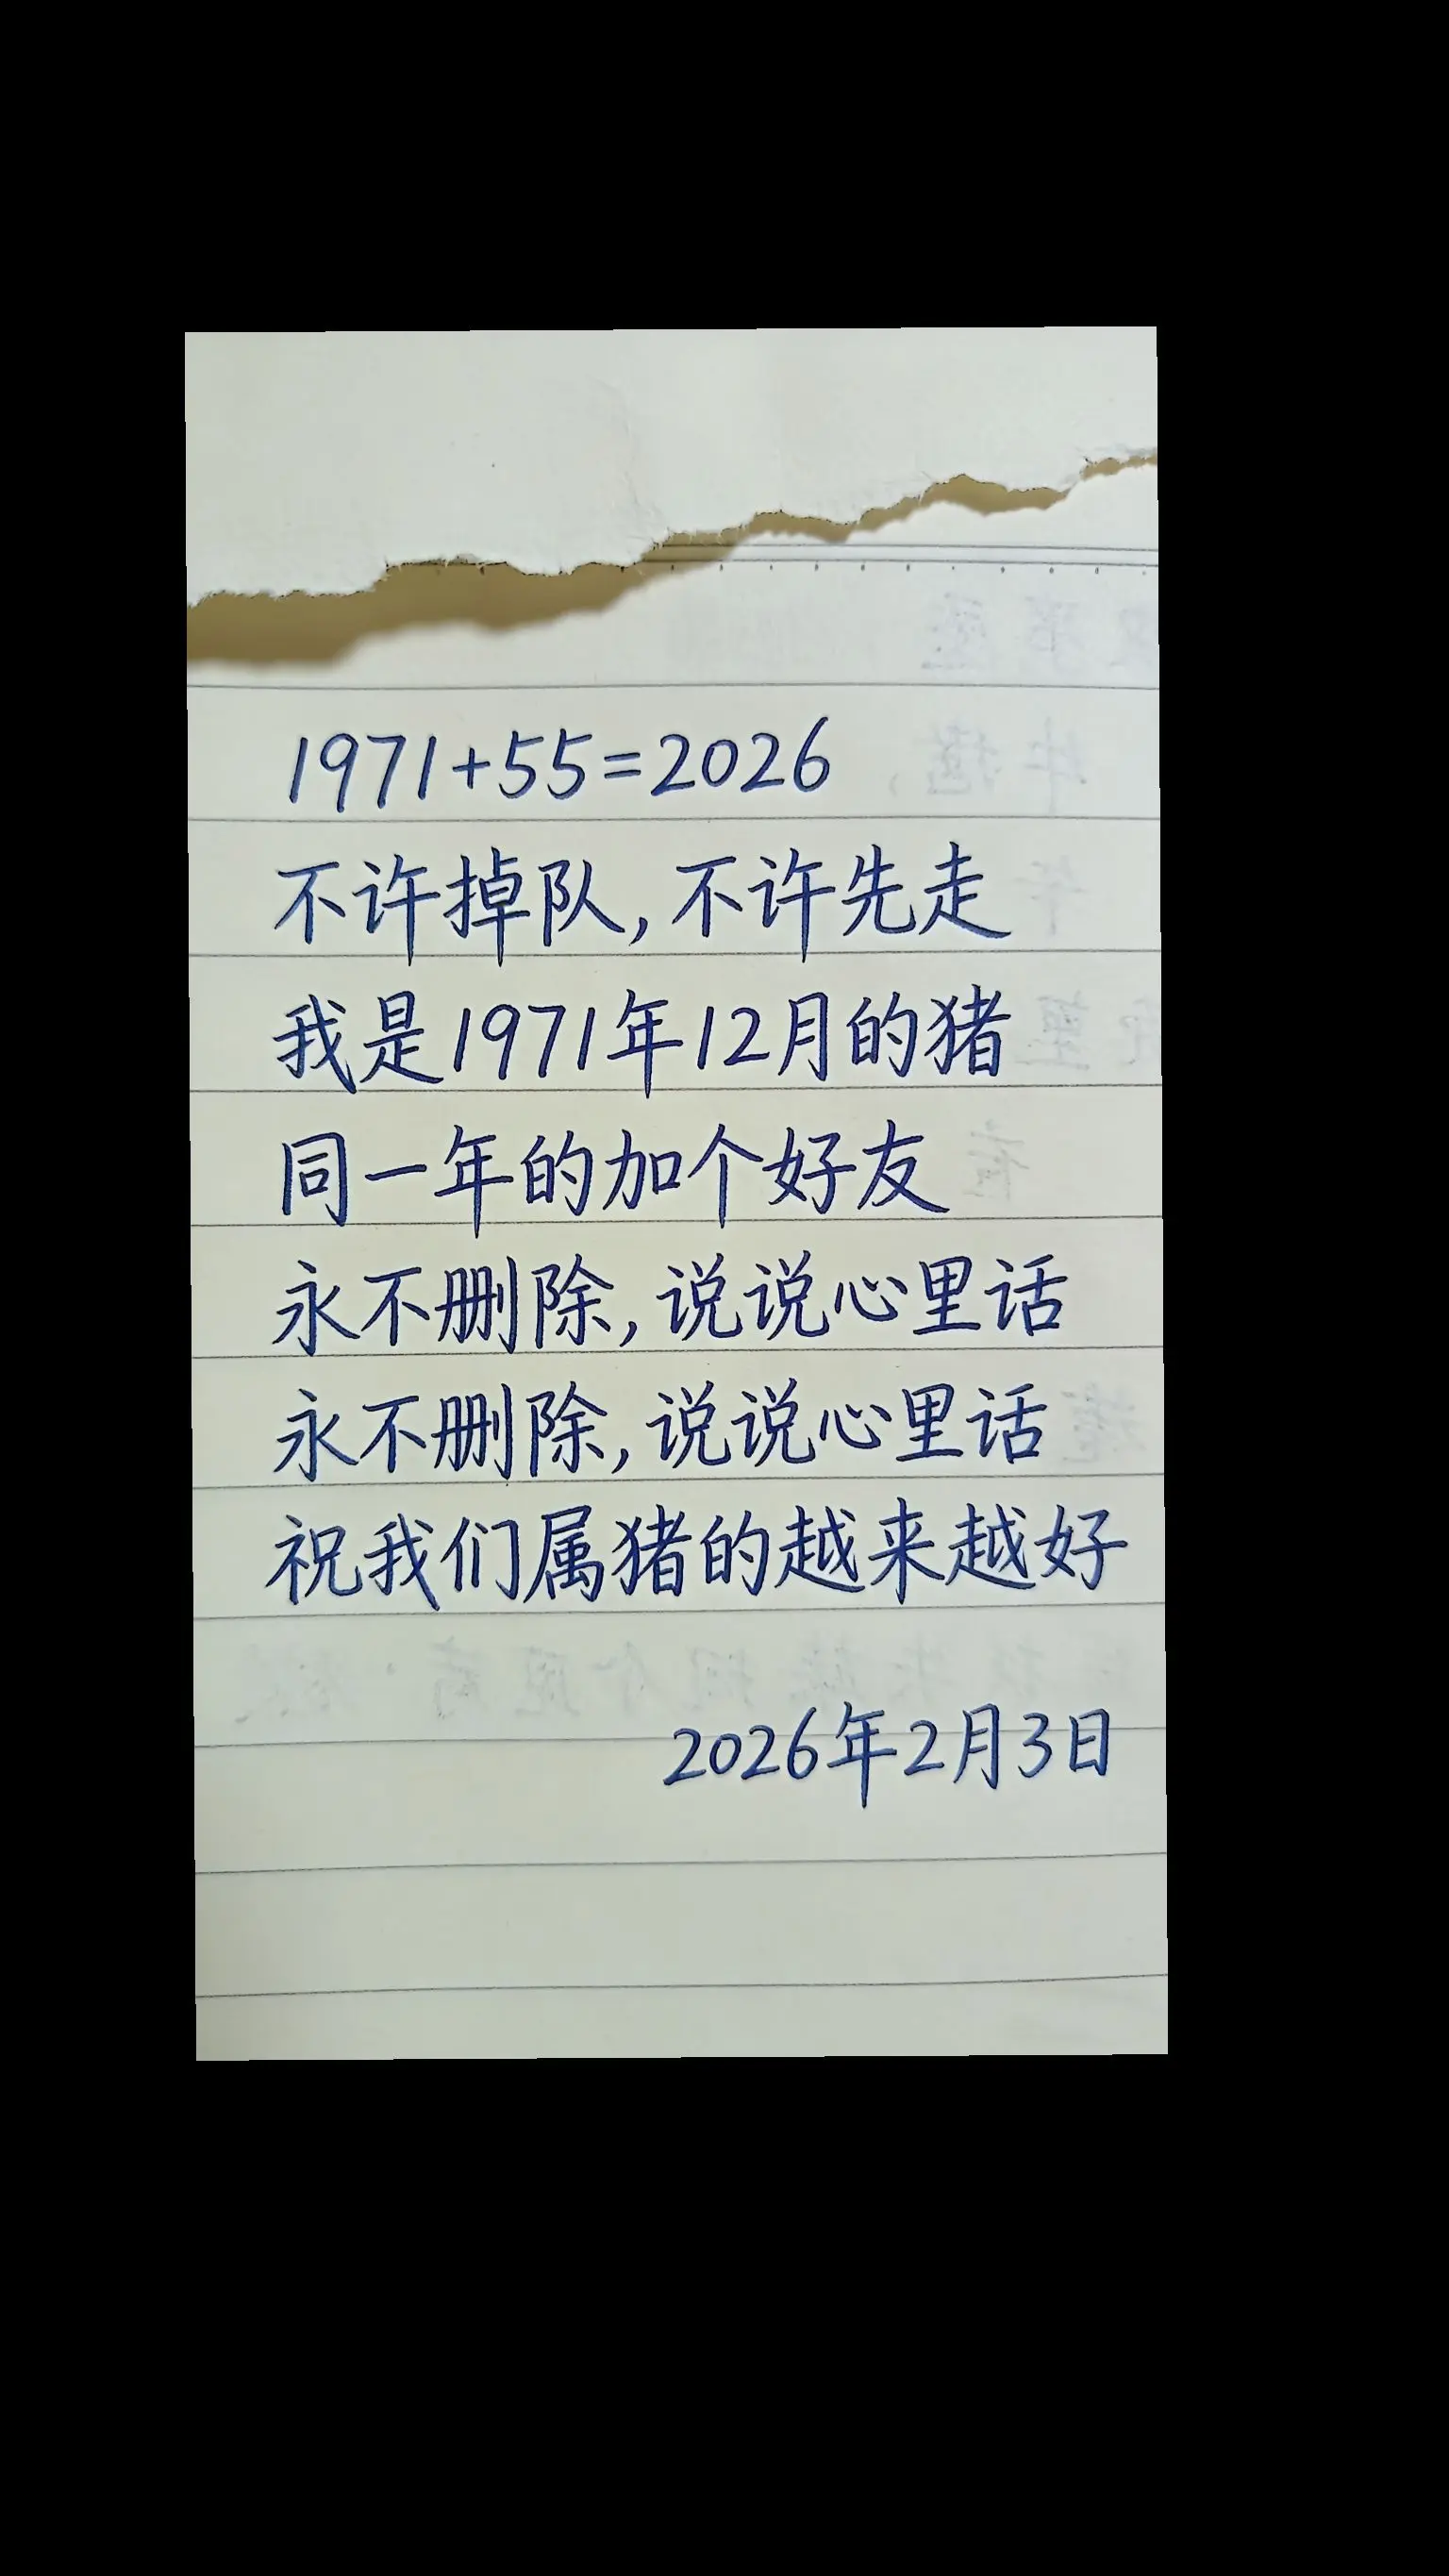 1971+55=2026
不许掉队,不许先走
我是1971年12月的猪
同一年的加个好友
永不删除,说说心里话
永不删除,说说心里话
祝我们属猪的越来越好
2026年2月3日